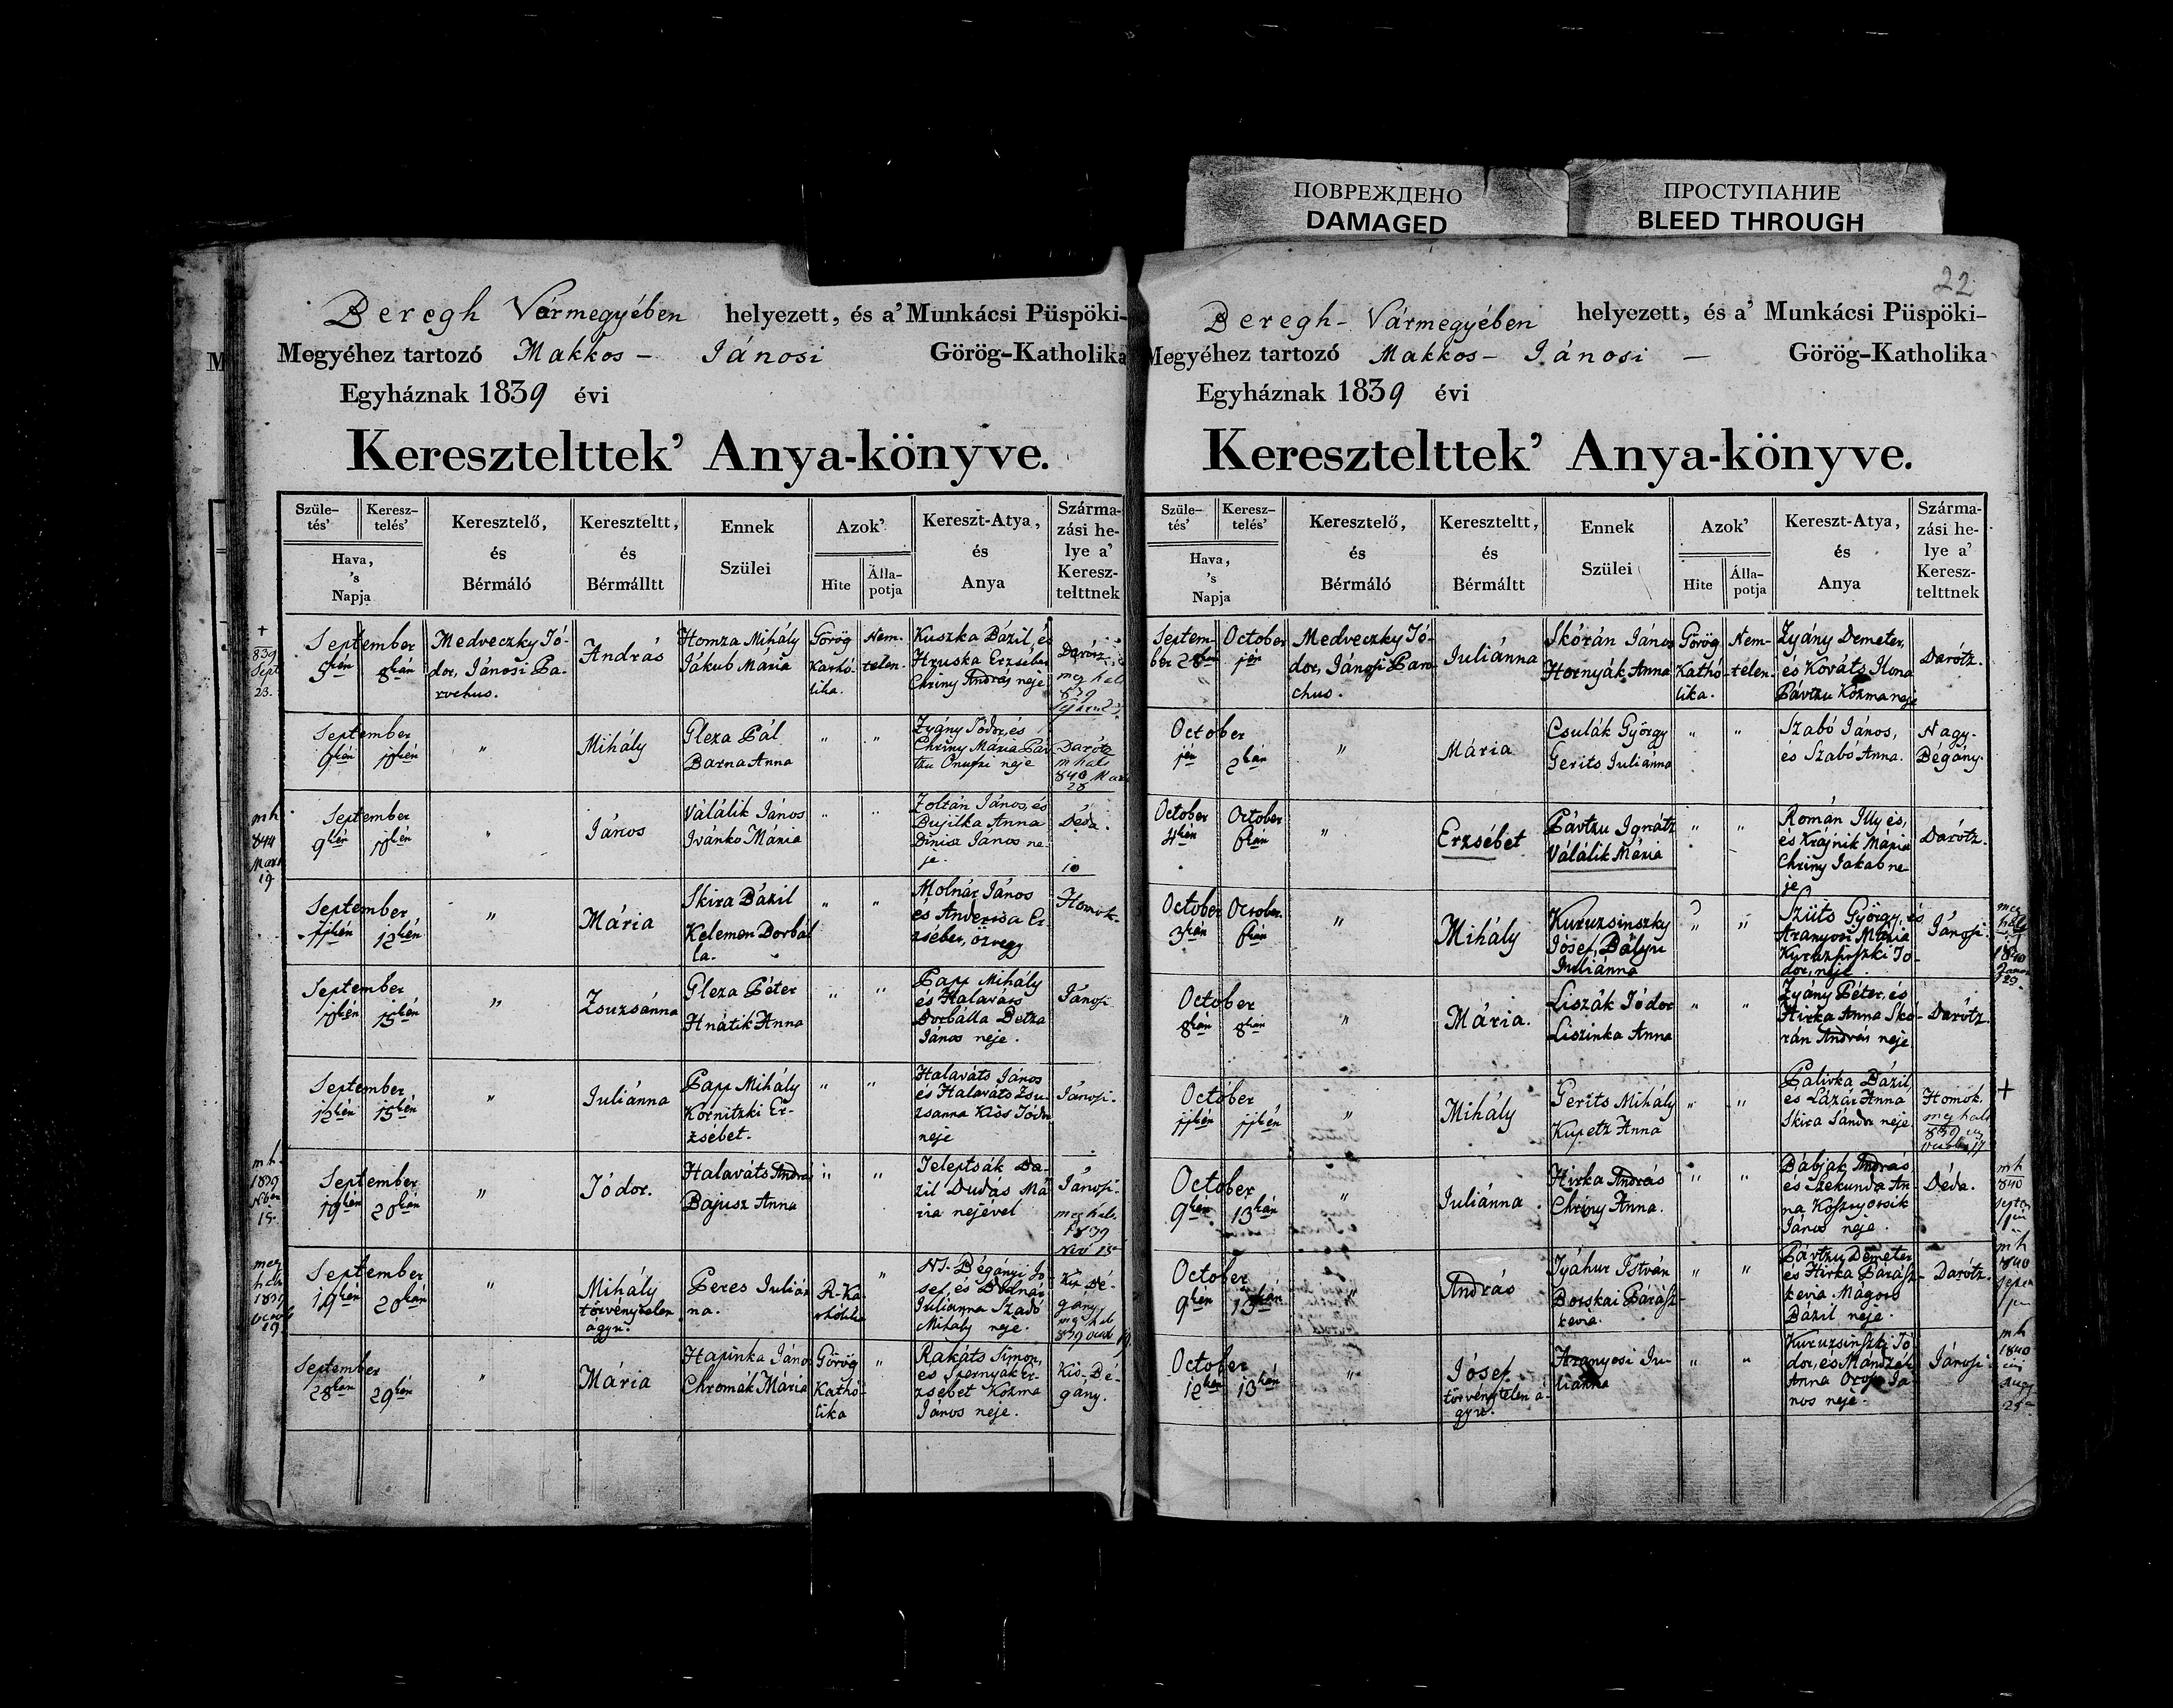 ПОВРЕЖДЕНО
DAMAGED
ПРОСТУПАНИЕ
BLEED THROUGH
Beregh Vármegyében helyezett, és a' Munkácsi Püspöki-
Megyéhez tartozó Makkos - Jánosi Görög-Katholika
Egyháznak 1839 évi
Keresztelttek' Anya-könyve.
Születés'
Keresztelés'
Hava,
's
Napja
Keresztelő,
és
Bérmáló
Kereszteltt,
és
Bérmálltt
Ennek
Szülei
Azok'
Hite
Álla-
potja
Kereszt-Atya,
és
Anya
Szárma-
zási he-
lye a'
Keresz-
telttnek
+
839
Sept
23.
September
8kán
Medveczky Tó-
dor, Jánosi Pa-
rochus.
András
Homza Mihály
Jakub Mária
Görög
Katho-
lika.
Nem-
telen
Kuszka Bázil, és
Hruska Erzsébet
Chriny András neje
Darótz
meg halt
839
September
"
Mihály
Gleza Pál
Barna Anna
" "
Zygány Tódor, és
Chriny Mária
neje
Darótz
m halt
840
28
mh
844
Mart
19
September
9kén
"
János
Válálik János
Ivánko Mária
" "
Zoltán János, és
Bujilka Anna
János ne-
je.
Déda.
September
12kén
"
Mária
Skira Bázil
Kelemen Dorbál
la.
" "
Molnár János
és Er-
zsébet, özvegy
Homok.
September
15kén
"
Zsuzsánna
Gleza Péter
Hnátik Anna
" "
Papp Mihály
és Halaváts
Dorbálla Betza
János neje.
Jánosi
September
12kén 15kén
"
Juliánna
Papp Mihály
Kornitzki Er-
zsébet.
" "
Halaváts János
és Halaváts Zsu-
zsanna Kiss Tódor
neje
Jánosi.
mh
1839
15.
September
19kén 20kán
"
Tódor.
Halaváts András
Bajusz Anna
" "
Teleptsák Bá-
zil Dudás Má-
ria nejével
Jánosi.
meg halt
1839
meg
halt
1839
19.
September
19kén 20kán
"
Mihály
törvénytelen
ágyu.
Peres Julián
na.
R-Ka-
tholika
"
Bégányi Jó-
sef, és Molnár
Juliánna Szabó
Mihály neje.
Kis Bé-
gány
meg halt
839
September
28kán 29kén
"
Mária
Hapinka János
Chromák Mária
Görög
Katho-
lika
"
Rakáts Simon,
és Er-
zsébet Kozma
János neje.
Kis-Bé-
gány.
22
Beregh- Vármegyében helyezett, és a' Munkácsi Püspöki-
Megyéhez tartozó Makkos - Jánosi — Görög-Katholika
Egyháznak 1839 évi
Keresztelttek' Anya-könyve.
Születés'
Keresztelés'
Hava,
's
Napja
Keresztelő,
és
Bérmáló
Kereszteltt,
és
Bérmáltt
Ennek
Szülei
Azok'
Hite
Álla-
potja
Kereszt-Atya,
és
Anya
Szárma-
zási he-
lye a'
Keresz-
telttnek
Septem-
ber 28kán
October
jén
Medveczky Tó-
dor, Jánosi Paro-
chus.
Juliánna
Skórán János
Hornyák Anna
Görög
Kathó-
lika.
Nem-
telen.
Zyány Demeter,
és Kováts Ilona
Pávtzu Kozma neje
Darótz.
October
jén 2kán
"
Mária
Csulák György
Gerits Juliánna
" "
Szabó János,
és Szabó Anna.
Nagy-
Bégány.
October
4kén
October
6kán
"
Erzsébet
Pávtzu Ignátz
Válálik Mária
" "
Román Illyés,
és Krajnik Mária
Chriny Jakab ne-
je
Darótz.
October
3kán
October
6kán
"
Mihály
Kuruzsinszky
Jósef, Bályu
Juliánna
" "
Szüts György, és
Aranyosi Mária
Kuruzsinszki Tó-
dor, neje
Jánosi.
meg
halt
1840
29.
October
8kán 8kán
"
Mária.
Liszák Tódor
Liszinka Anna
" "
Zyány Péter, és
Hirka Anna Skó-
rán András neje
Darótz.
October
"
Mihály
Gerits Mihály
Kupetz Anna
" "
Palivka Bázil,
és Lázár Anna
Skira Sándor neje
Homok.
meg halt
839
+
October
9kén 13kán
"
Juliánna
Hirka András
Chriny Anna.
" "
Babjak András
és Szekunda An-
na
János neje.
Déda.
mh
840
October
9kén 13kán
"
András
Tyáhur István
Borskai Párász-
kevia.
" "
Pávtzu Demeter
és Hirka Párász-
kevia Mágoss
Bázil neje.
Darótz.
mh
1840
October
12kén 13kán
"
Jósef
törvénytelen á-
gyu.
Aranyosi Ju-
liánna
" "
Kuruzsinszki Tó-
dor, és
Anna Orosz Já-
nos neje.
Jánosi.
mh
1840
25